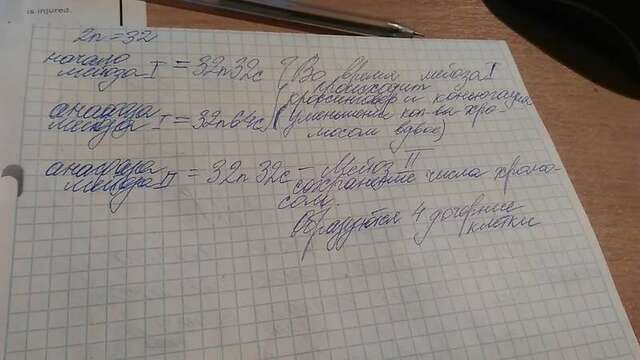 is injured.
2n=32
начало
мейоза I = 32n32c
Во время мейоза I
происходит
кроссинговер и конъюгация
(уменьшение кол-ва хро-
мосом вдвое)
анафаза
мейоза I = 32n64c
анафаза
мейоза II = 32n 32c – Мейоз II
сохранение числа хромо-
сом.
Образуются 4 дочерние
клетки